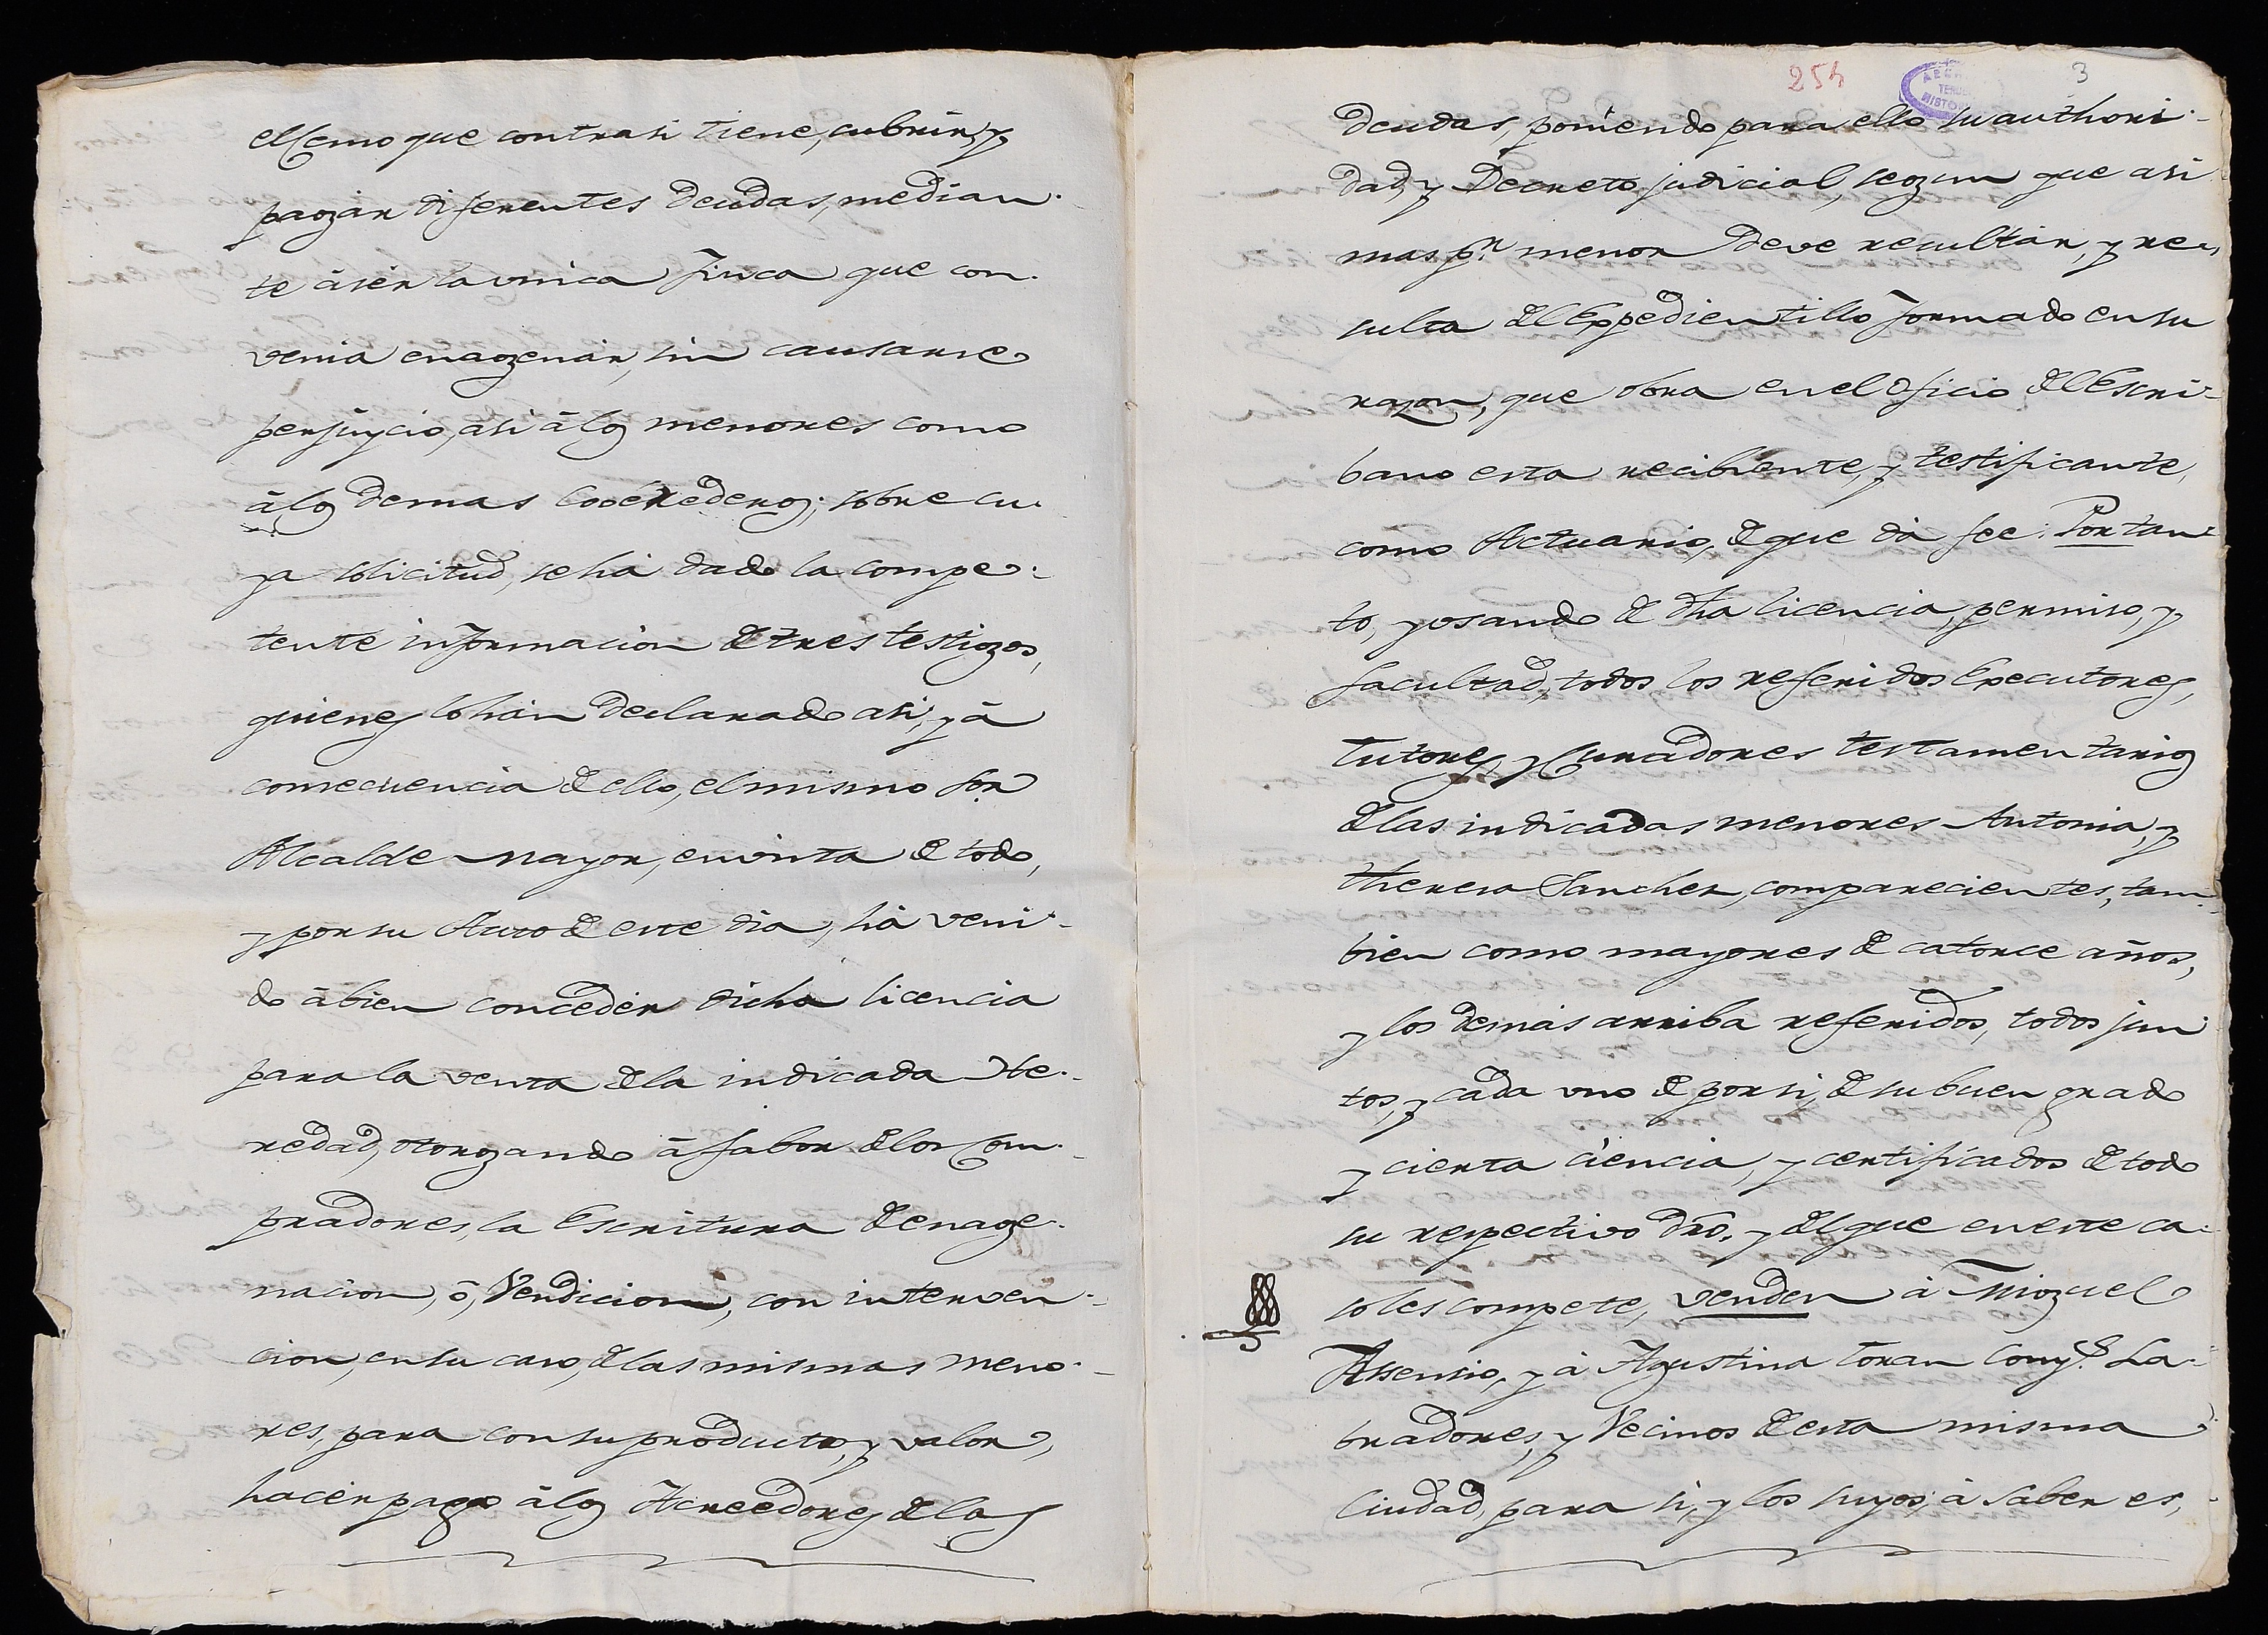 el Censo que contra si tiene, cubrir, y
pagar diferentes deudas, median-
te â sér la unica finca que con-
venia enagenár, sin causarse
perjuycio, asi â los menores como
â los demas Coerederos; sobre cu-
ya solicitud, se há dado la compe-
tente informacion de tres testigos,
quienes lo hán declarado asi, y â
consecuencia de ello, el mismo Sor
Alcalde mayor, en vista de todo,
y por su Auto de este dia, há veni-
do â bien concedér dicha licencia
para la venta de la indicada He-
redad, otorgando â fabor de los Com-
pradores, la Escritura de enage-
nacion, ó, Vendicion, con interven-
cion, en su caso, de las mismas meno-
res, para con su producto, y valor,
hacér pago â los Acreedores de las
254 3
deudas, poniendo para ello su authori-
dad, y Decreto judicial, segun que asi
mas pr. menor deve resultár, y re-
sulta del Expedientillo formado en su
razon, que obra en el oficio del Escri-
bano esta recibiente, y testificante,
como Actuario, de que dá fee: Por tan-
to, y usando de dha licencia, permiso, y
facultad, todos los referidos Executores,
Tutores, y Curadores testamentarios
de las indicadas menores Antonia, y
Theresa Sanchez, comparecientes, tam-
bien como mayores de catorce años,
y los demás arriba referidos, todos jun-
tos, y cada uno de por si, de su buen grado
y cierta ciencia, y certificados de todo
su respectivo dro. y del que en este ca-
so les compete, venden â Miguel
Assensio, y â Agustina Toran Conyes. La-
bradores, y Vecinos de esta misma
Ciudad, para si, y los suyos, â saber es,